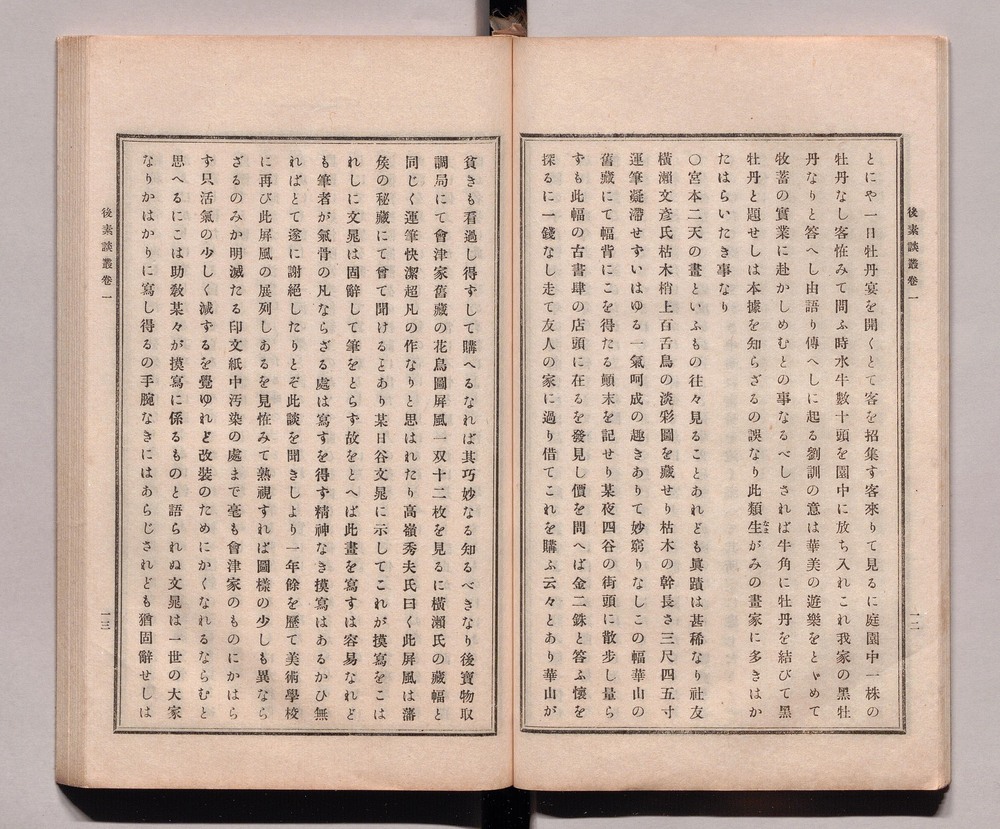 後素談叢卷一
一二
とにや一日牡丹宴を開くとて客を招集す客來りて見るに庭園中一株の
牡丹なし客恠みて問ふ時水牛數十頭を園中に放ち入れこれ我家の黑牡
丹なりと答へし由語り傳へしに起る劉訓の意は華美の遊樂をとゞめて
牧蓄の實業に赴かしめむとの事なるべしされば牛角に牡丹を結びて黑
牡丹と題せしは本據を知らざるの誤なり此類生がみの畫家に多きはか
たはらいたき事なり
〇宮本二天の畫といふもの往々見ることあれども眞蹟は甚稀なり社友
橫瀨文彥氏枯木梢上百舌鳥の淡彩圖を藏せり枯木の幹長さ三尺四五寸
運筆凝滯せずいはゆる一氣呵成の趣きありて妙窮りなしこの幅華山の
舊藏にて幅背にこを得たる顚末を記せり某夜四谷の街頭に散步し量ら
ずも此幅の古書肆の店頭に在るを發見し價を問へば金二銖と答ふ懷を
探るに一錢なし走て友人の家に過り借てこれを購ふ云々とあり華山が
貧きも看過し得ずして購へるなれば其巧妙なる知るべきなり後寶物取
調局にて會津家舊藏の花鳥圖屛風一双十二枚を見るに橫瀨氏の藏幅と
同じく運筆快潔超凡の作なりと思はれたり高嶺秀夫氏曰く此屛風は藩
矦の秘藏にて曾て聞けるとあり某日谷文晁に示してこれが摸寫をこは
れしに文晁は固辭して筆をとらず故をとへば此畫を寫すは容易なれど
も筆者が氣骨の凡ならざる處は寫すを得ず精神なき摸寫はあるかひ無
ればとて遂に謝絕したりとぞ此談を聞きしより一年餘を歷て美術學校
に再び此屛風の展列しあるを見恠みて熟視すれば圖樣の少しも異なら
ざるのみか明滅たる印文紙中汚染の處まで毫も會津家のものにかはら
ず只活氣の少しく減ずるを覺ゆれど改裝のためにかくなれるならむと
思へるにこは助敎某々が摸寫に係るものと語られぬ文晁は一世の大家
なりかはかりに寫し得るの手腕なきにはあらじされども猶固辭せしは
後素談叢卷一
一三